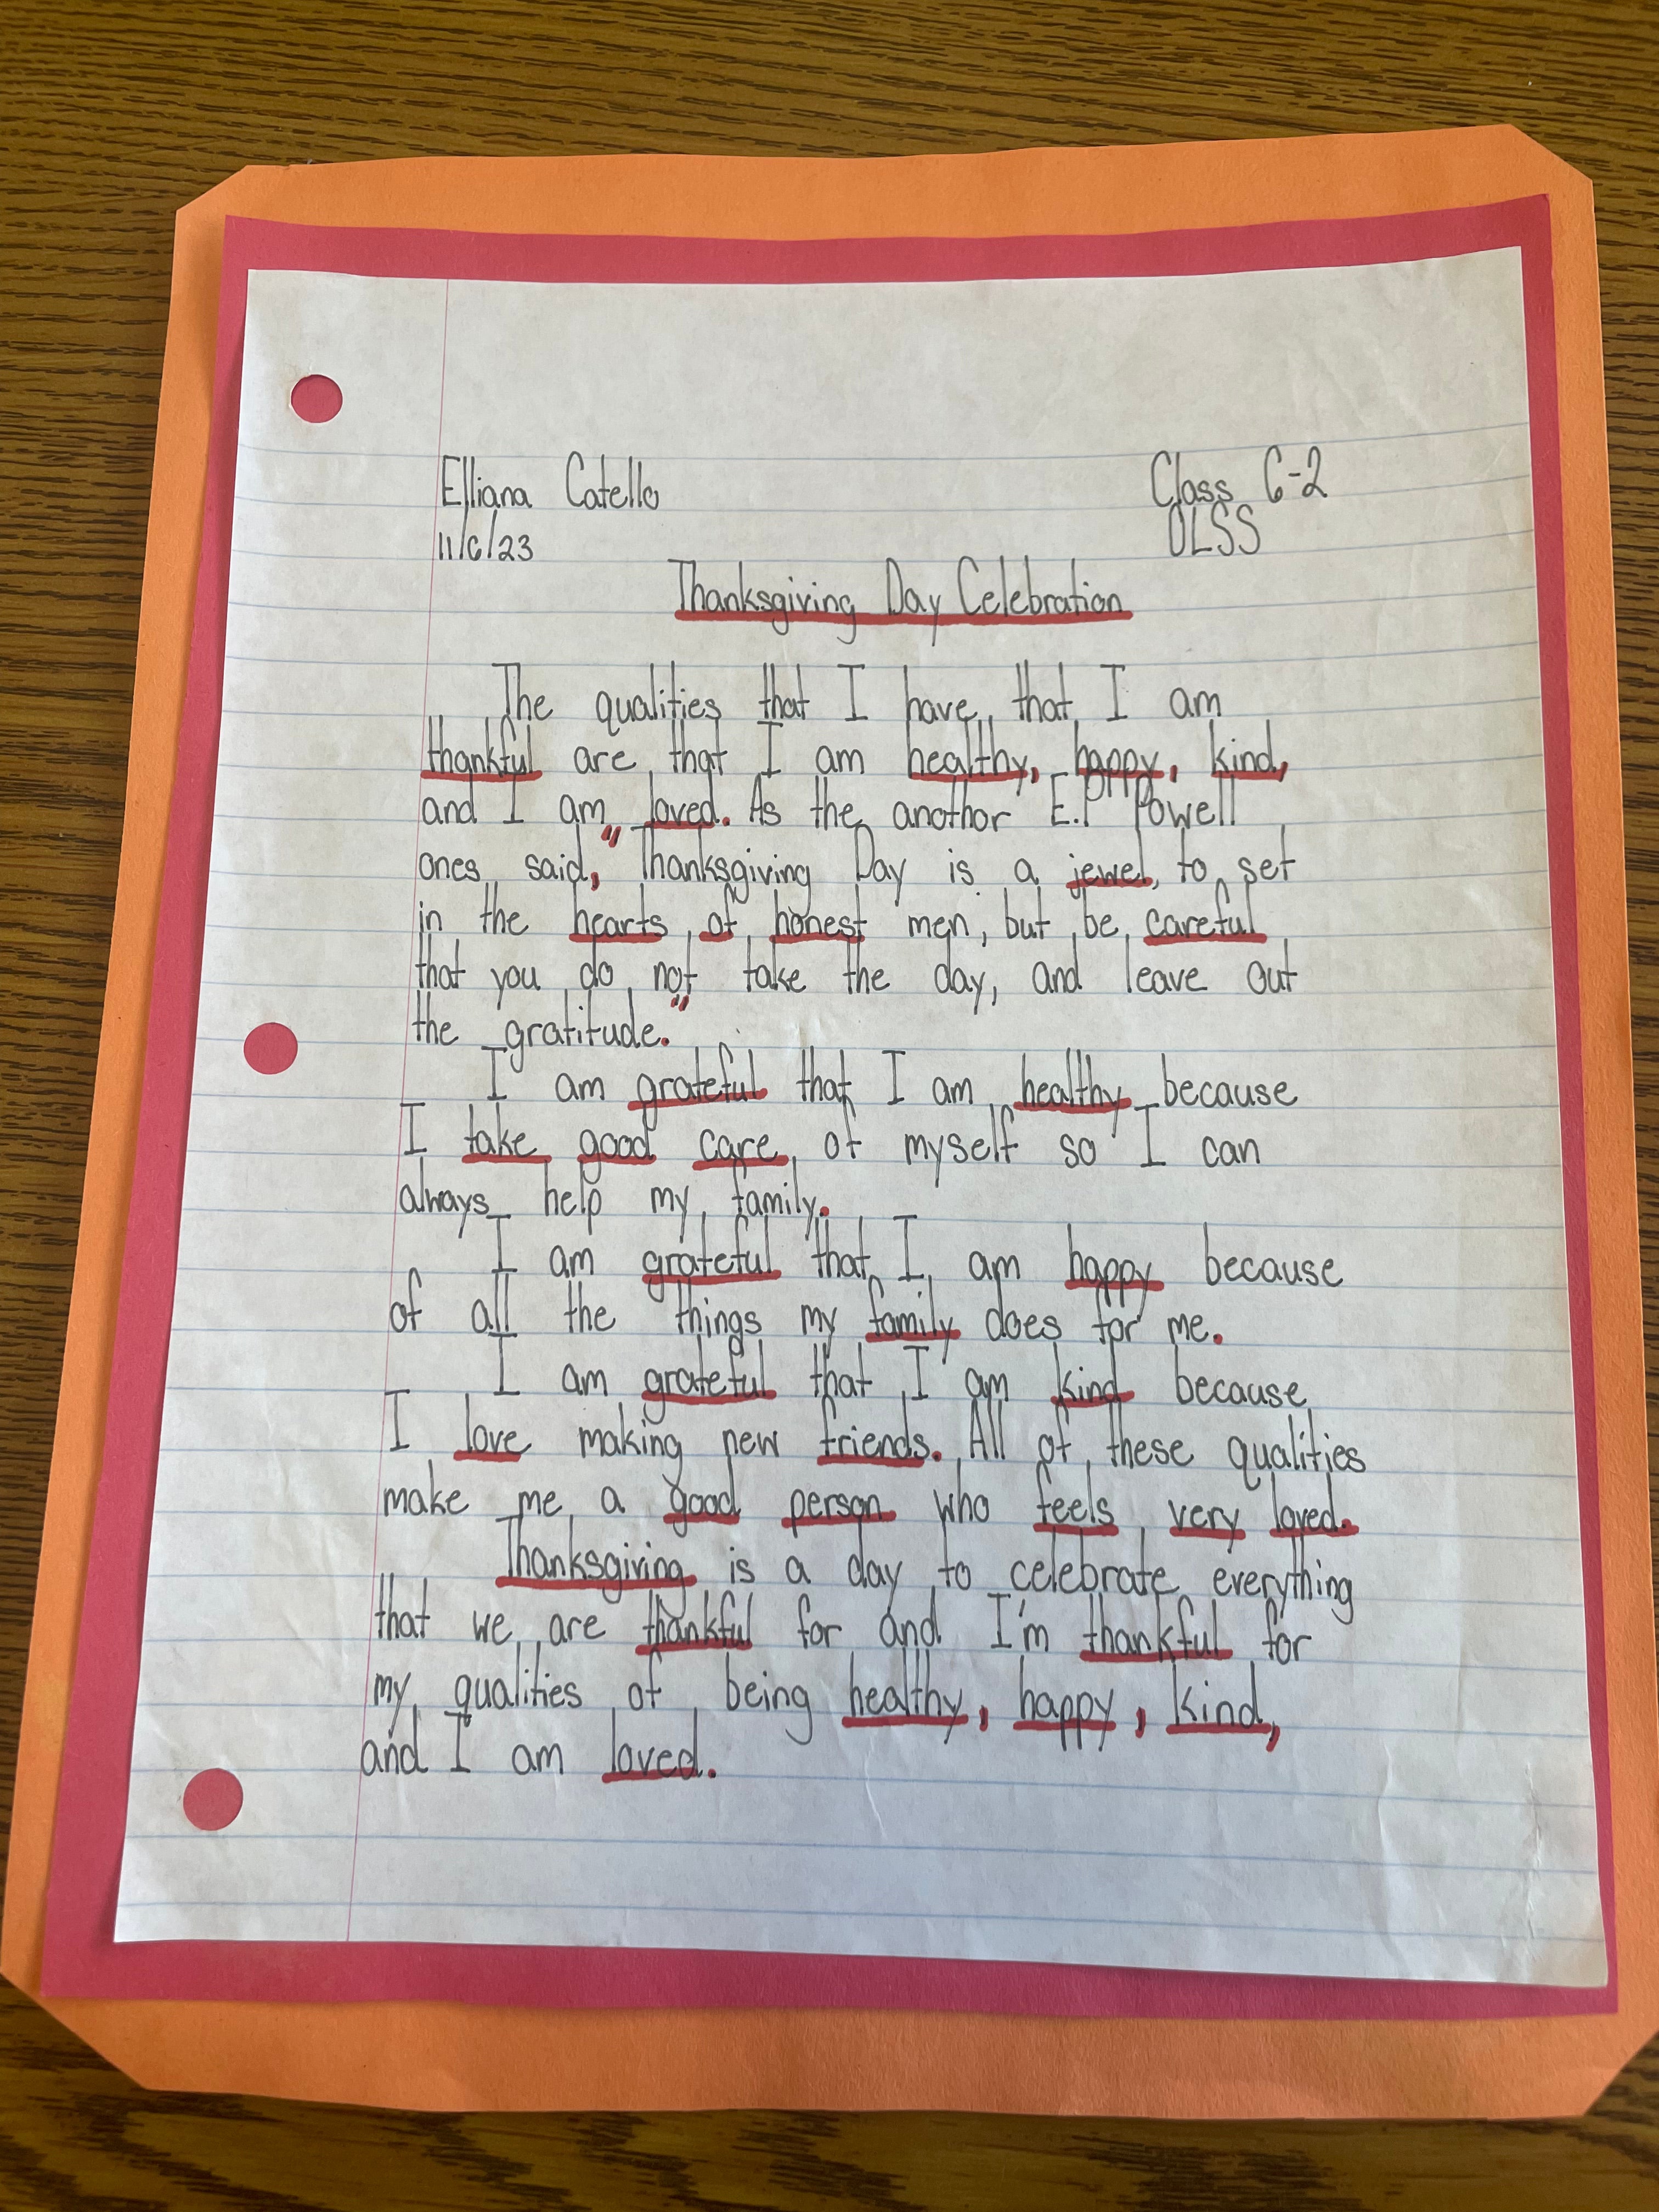 Elliana Catello
Class 6-2
11/6/23
OLSS
Thanksgiving Day Celebration
The qualities that I have, that I am
thankful are that I am healthy, happy, kind,
and I am loved. As the anothor E.P Powell
ones said, "Thanksgiving Day is a jewel, to set
in the hearts of honest men, but be careful
that you do not take the day, and leave out
the gratitude."
I am grateful that I am healthy because
I take good care of myself so I can
always help my family.
I am grateful that I am happy because
of all the things my family does for me.
I am grateful that I am kind because
I love making new friends. All of these qualities
make me a good person who feels very loved.
Thanksgiving is a day to celebrate everything
that we are thankful for and I'm thankful for
my qualities of being healthy, happy, kind,
and I am loved.